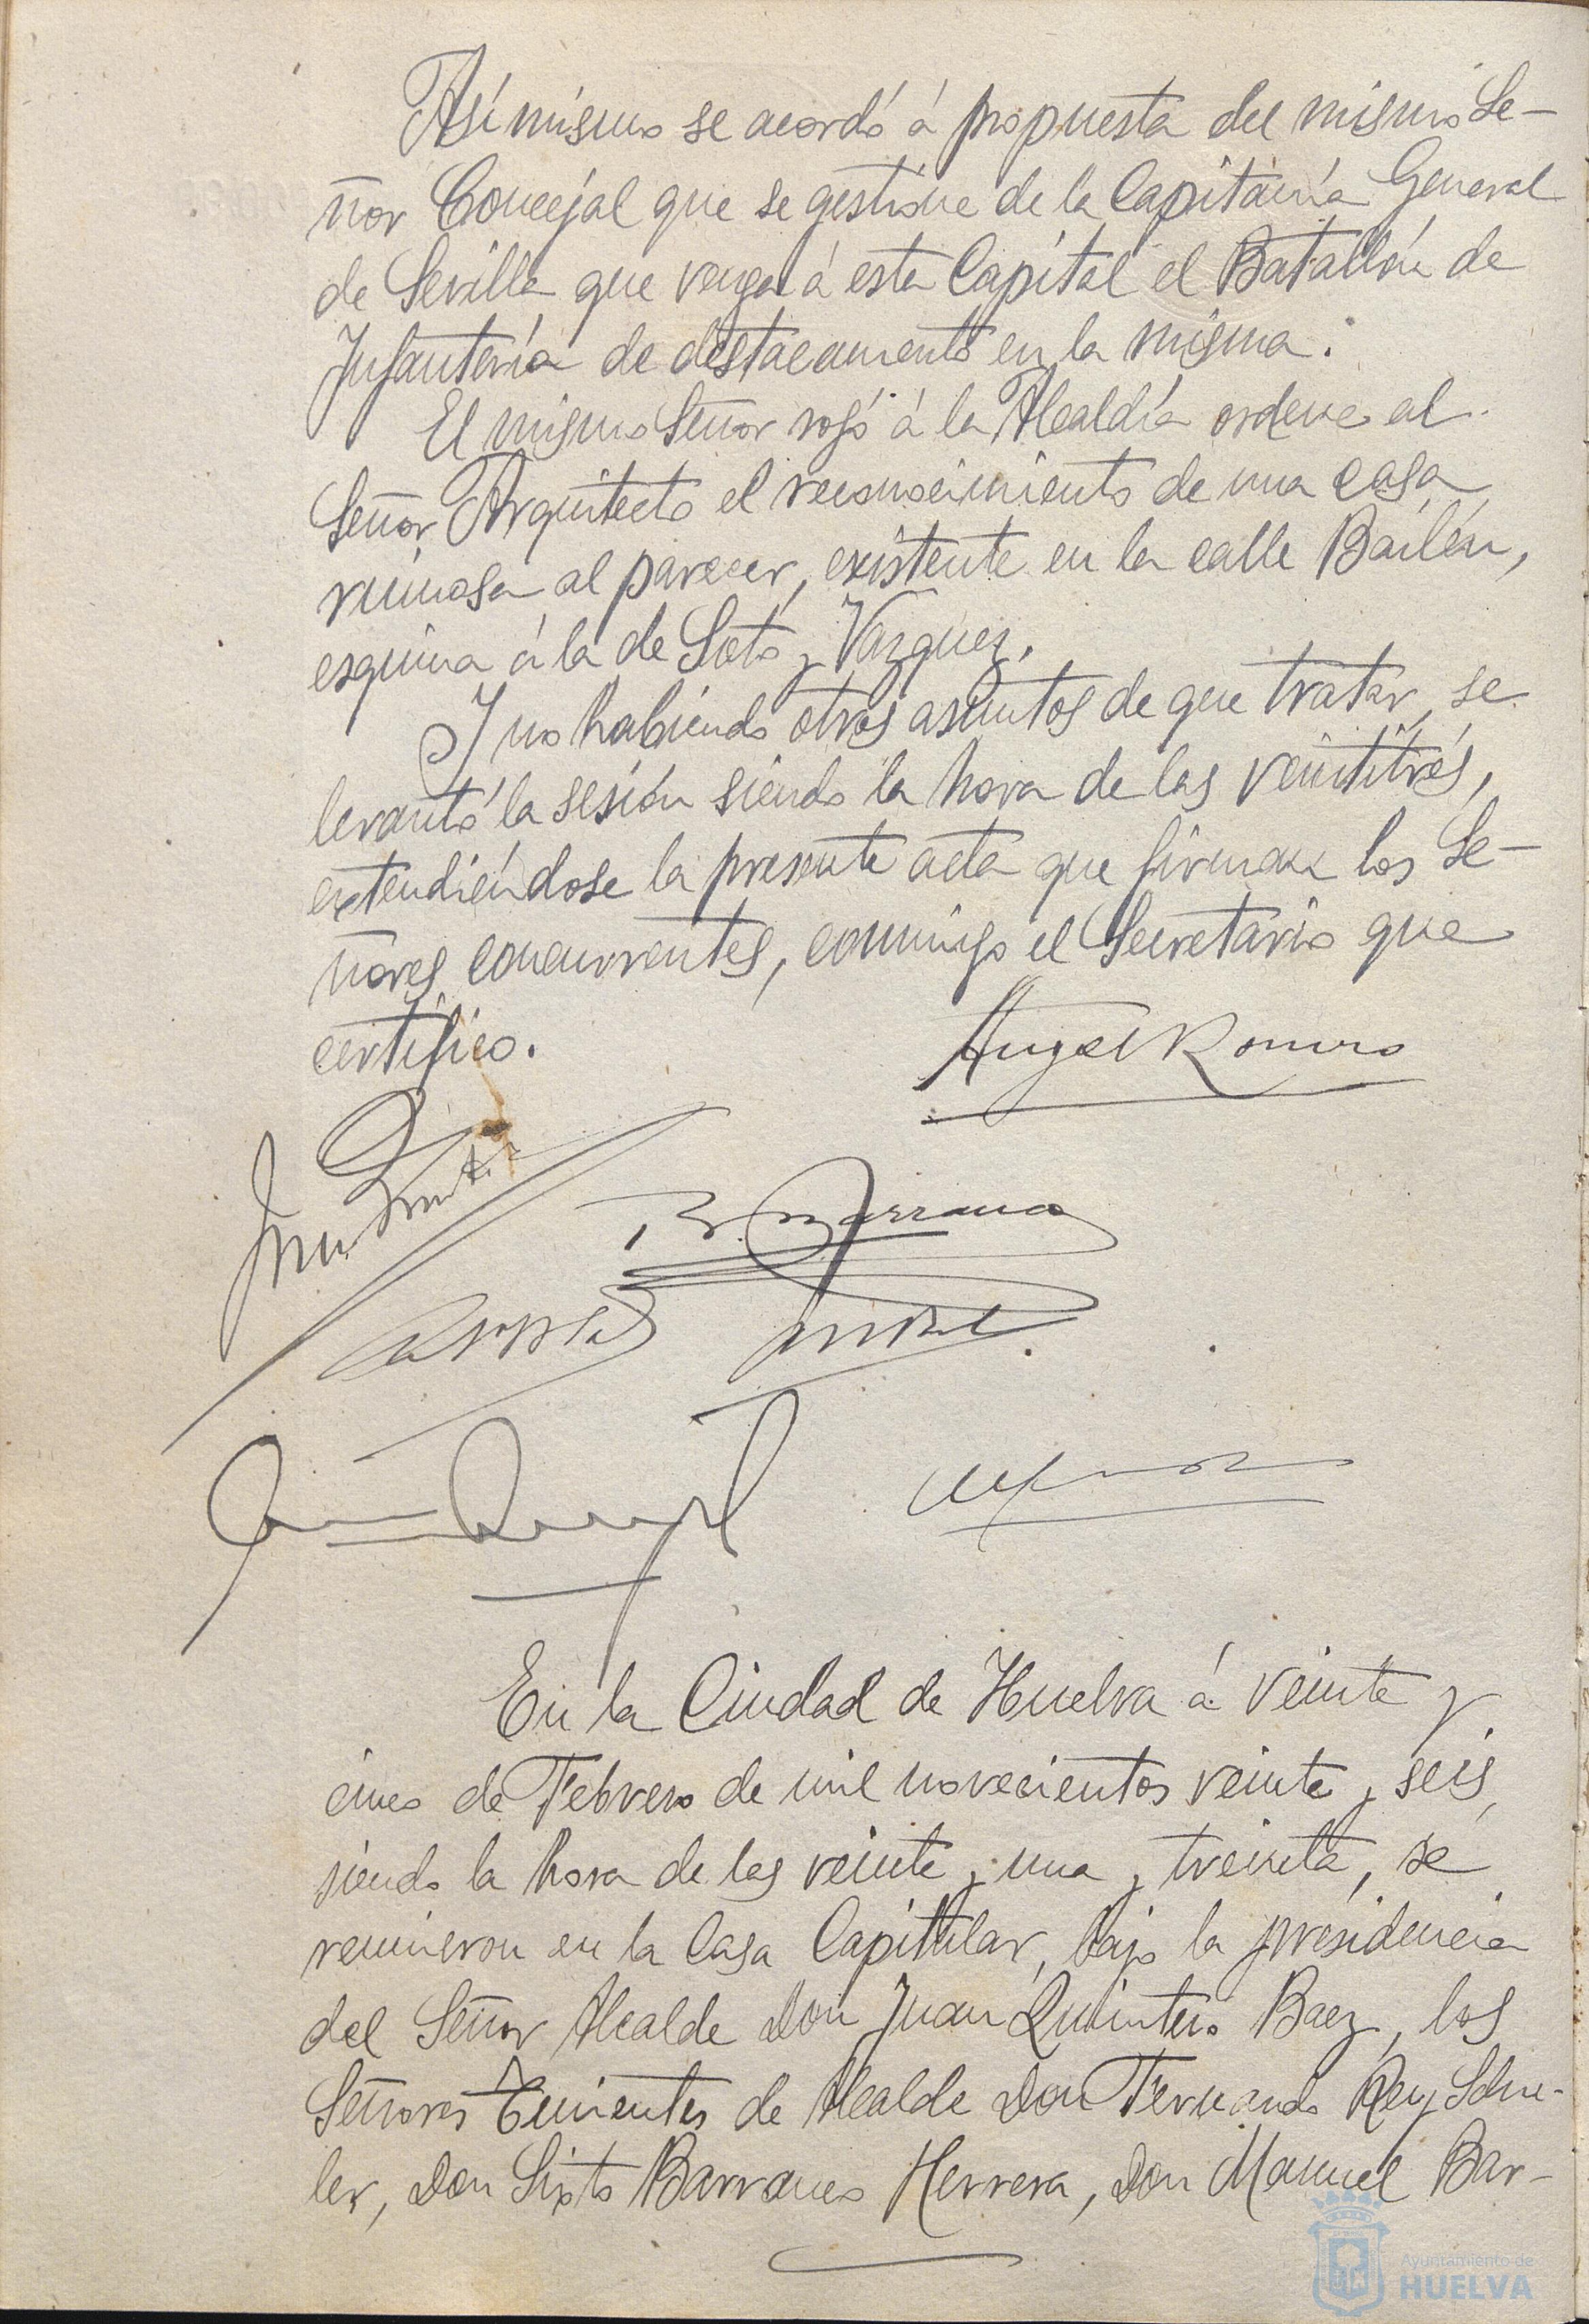 Así mismo se acordó á propuesta del mismo Se-
ñor Concejal que se gestione de la Capitanía General
de Sevilla que venga á esta Capital el Batallón de
Infantería de destacamento en la misma.
El mismo Señor rogó á la Alcaldía ordene al
Señor Arquitecto el reconocimiento de una casa
ruinosa al parecer, existente en la calle Bailén,
esquina á la de Soto y Vazquez.
Y no habiendo otros asuntos de que tratar, se
levantó la sesión siendo la hora de las veintitrés,
extendiéndose la presente acta que firman los Se-
ñores concurrentes, conmigo el Secretario que
certifico.
Angel Romero
En la Ciudad de Huelva á veinte y
cinco de Febrero de mil novecientos veinte y seis,
siendo la hora de las veinte y una y treinta, se
reunieron en la Casa Capitular, bajo la presidencia
del Señor Alcalde Don Juan Quintero Baez, los
Señores Tenientes de Alcalde Don Fernando Rey
ler, Don Sixto Barranco Herrera, Don Manuel Bar-
Ayuntamiento de
HUELVA